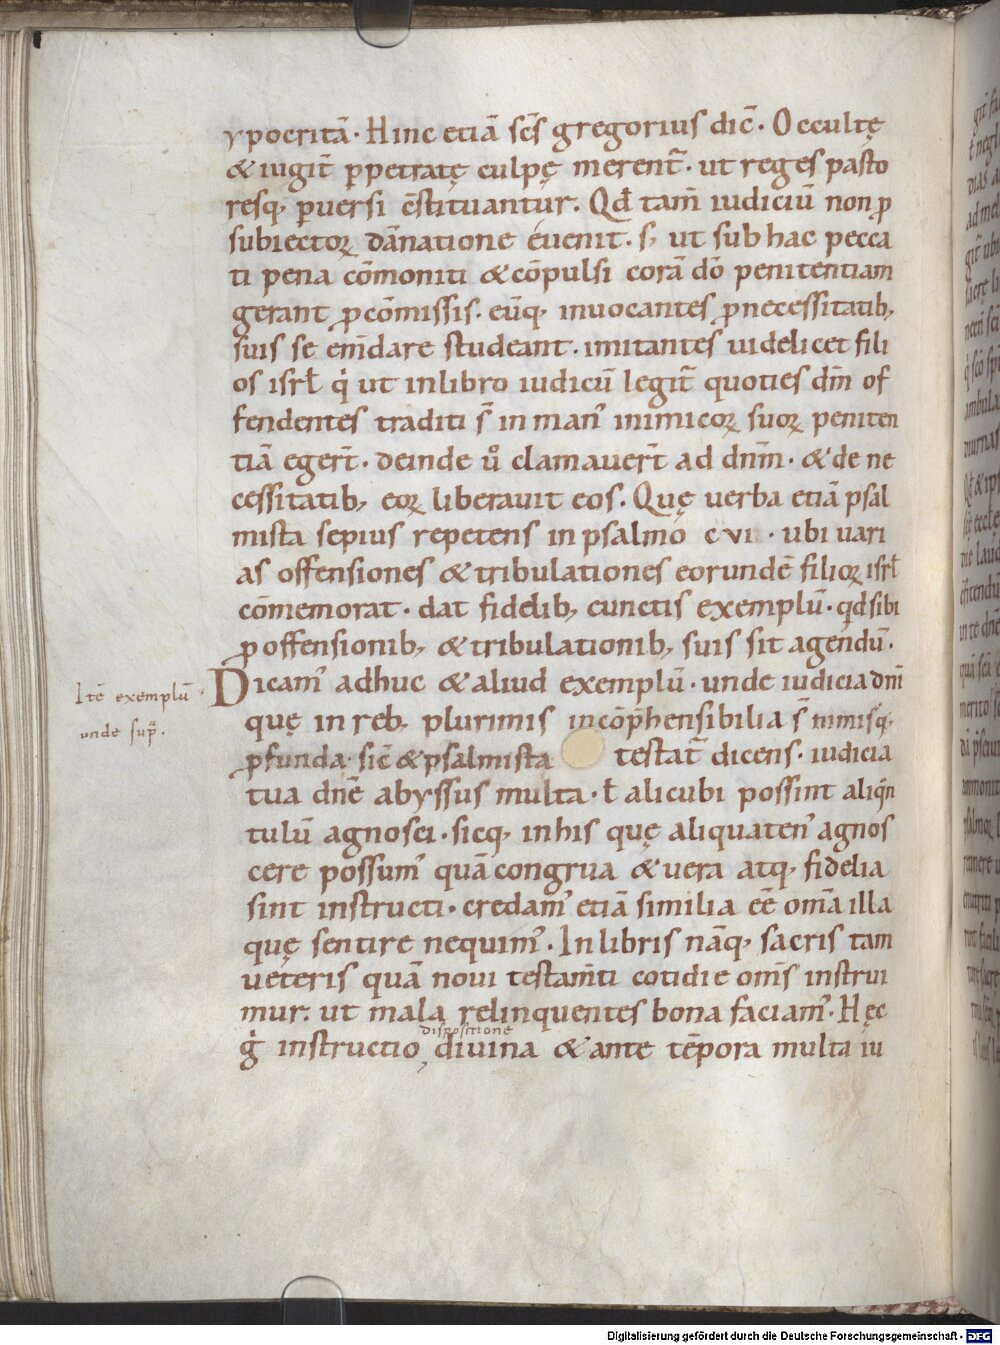 ypocritā · Hinc etiā sc̄s gregorius dic̄ · Occultę
& iugit̄ ꝑpetratę culpę merent̄ · ut reges pasto
resq; ꝑuersi c̄stituantur. Qđ tam̄ iudiciū non ꝓ
subiectoꝝ dānatione euenit · s; ut sub hac pecca
ti pena cōmoniti & cōpulsi corā dō penitentiam
gerant ꝓ cōmissis. eūq; inuocantes ꝓ necessitatib;
suis se em̄dare studeant · imitantes uidelicet fili
os isrł q̇ ut in libro iudicū legit̄ quoties dm̄ of
fendentes traditi s̄ in man᾿ inimicoꝝ suoꝝ peniten
tiā egert̄ · deinde ů clamauert̄ ad dnm̄ · & de ne
cessitatib; eoꝝ liberauit eos. Quę verba etiā psal
mista sepius repetens in psalmo cvi · ubi uari
as offensiones & tribulationes eorundē filioꝝ isrł
cōmemorat · dat fidelib; cunctis exemplū · qđ sibi
ꝓ offensionib; & tribulationib; suis sit agendū ·
Itē exemplū · Dicam᾿ adhuc & aliud exemplū · unde iudicia dnī
unde sup̄. quę in reb; plurimis incōp̄hensibilia s̄ nimisq;
ꝓfunda · sic̄ & psalmista testat̄ dicens · iudicia
tua dnē abyssus multa · ł alicubi possint aliqn̄
tulū agnosci · sicq; in his quę aliquaten᾿ agnos
cere possum᾿ quā congrua & uera atq; fidelia
sint instructi · credam᾿ etiā similia eē omā illa
quę sentire nequim᾿ · In libris nāq; sacris tam
ueteris quā noui testam̄ti cotidie om̄s instrui
mur · ut mala relinquentes bona faciam᾿ · Hęc
dispositione
ġ instructio, diuina & ante tēpora multa iu
Digitalisierung gefördert durch die Deutsche Forschungsgemeinschaft - DFG